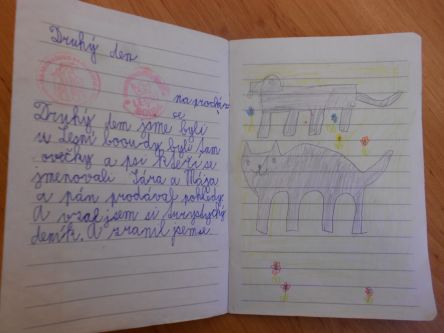 Druhý den
na procház
ce
Druhý den jsme byli
u Lesní boudy byli tam
ovečky a psi kteří se
jmenovali Sára a Mája
a pán prodával pohledy.
A vzal jsem si turystycký
deník. A zranil jsem